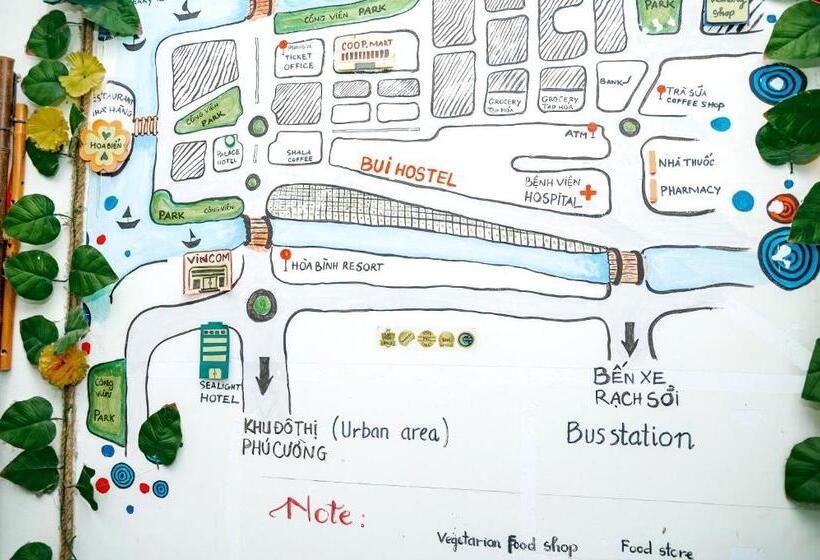 CÔNG VIÊN PARK
PARK
shop
TICKET
OFFICE
COOPMART
BANK
TRÀ SỮA
COFFEE SHOP
GROCERY
TẠP HÓA
GROCERY
TẠP HÓA
NHÀ HÀNG
HOA BIỂN
CÔNG VIÊN
PARK
PALACE
HOTEL
SHALA
COFFEE
ATM
BUI HOSTEL
BỆNH VIỆN
HOSPITAL
NHÀ THUỐC
PHARMACY
PARK CÔNG VIÊN
VINCOM
HÒA BÌNH RESORT
SEALIGHT
HOTEL
CÔNG
VIÊN
PARK
BẾN XE
RẠCH SỎI
Bus station
KHU ĐÔ THỊ (Urban area)
PHÚ CƯỜNG
Note:
Vegetarian Food shop
Food store